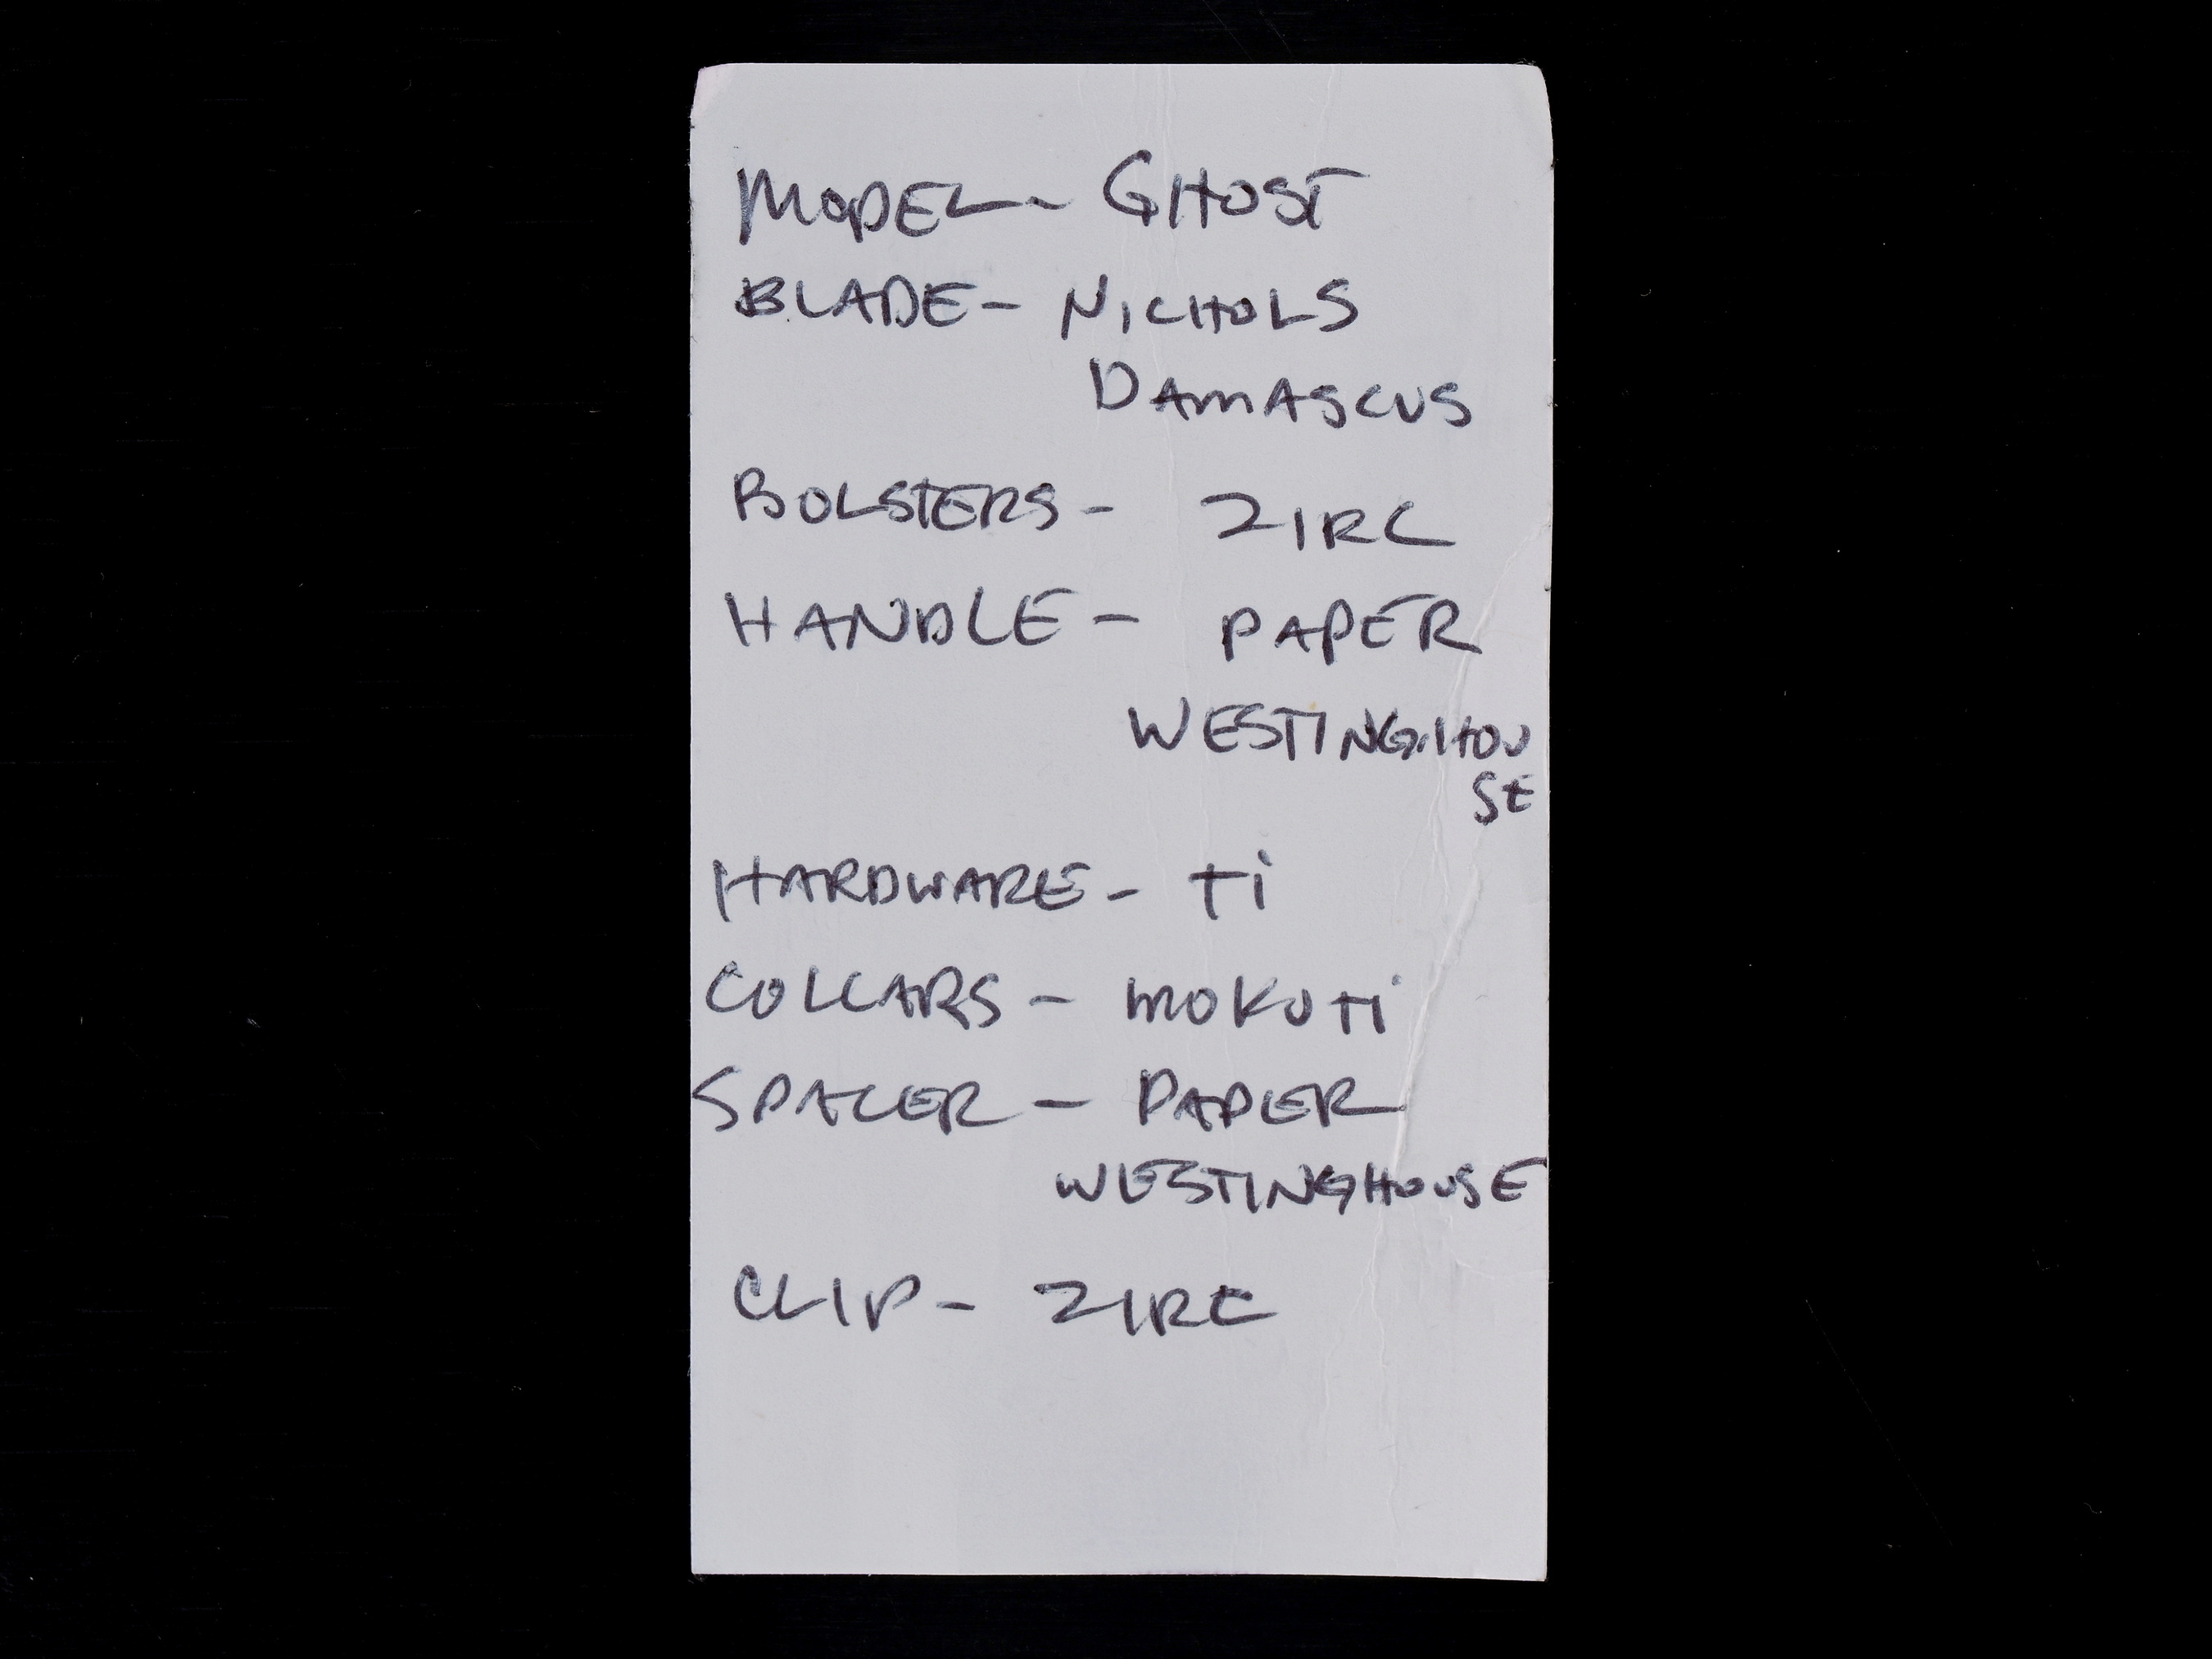 MODEL - GHOST
BLADE - NICHOLS
DAMASCUS
BOLSTERS - ZIRC
HANDLE - PAPER
WESTINGHOU
SE
HARDWARE - Ti
COLLARS - MOKUTi
SPACER - PAPER
WESTINGHOUSE
CLIP - ZIRC